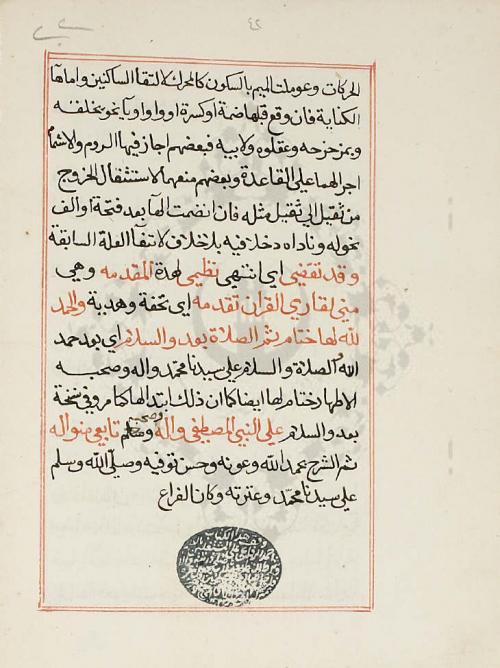 ٤٢
الحركات وعوملت الميم بالسكون كالمحرك لالتقا الساكنين واما ها
الكناية فان وقع قبلها ضمة او كسرة او واو او يا نحو يخلفه
وبمزحزحه وعقلوه ولابيه فبعضهم اجاز فيها الروم والاشمام
اجراهما على القاعدة وبعضهم منعهما لاستثقال الخروج
من ثقيل الى ثقيل مثله فان انضمت الها بعد فتحة او الف
نحو له وناداه دخلا فيه بلا خلاف لانتفا العلة السابقة
وقد تقضى اي انتهى نظمي لهذة المقدمه وهي
مني لقاري القران تقدمه اي تحفة وهدية والحمد
لله لها ختام ثم الصلاة بعد والسلام اي بعد حمد
الله الصلاة والسلام على سيدنا محمد واله وصحبه
الاطهار ختام لها ايضا كما ان ذلك ابتدا لها كما مر وفي نسخة
بعد والسلام على النبي المصطفى واله وصحبه وسلم تابعي منواله
تم الشرح بحمد الله وعونه وحسن توفيه وصلى الله وسلم
على سيدنا محمد وعترته وكان الفراع